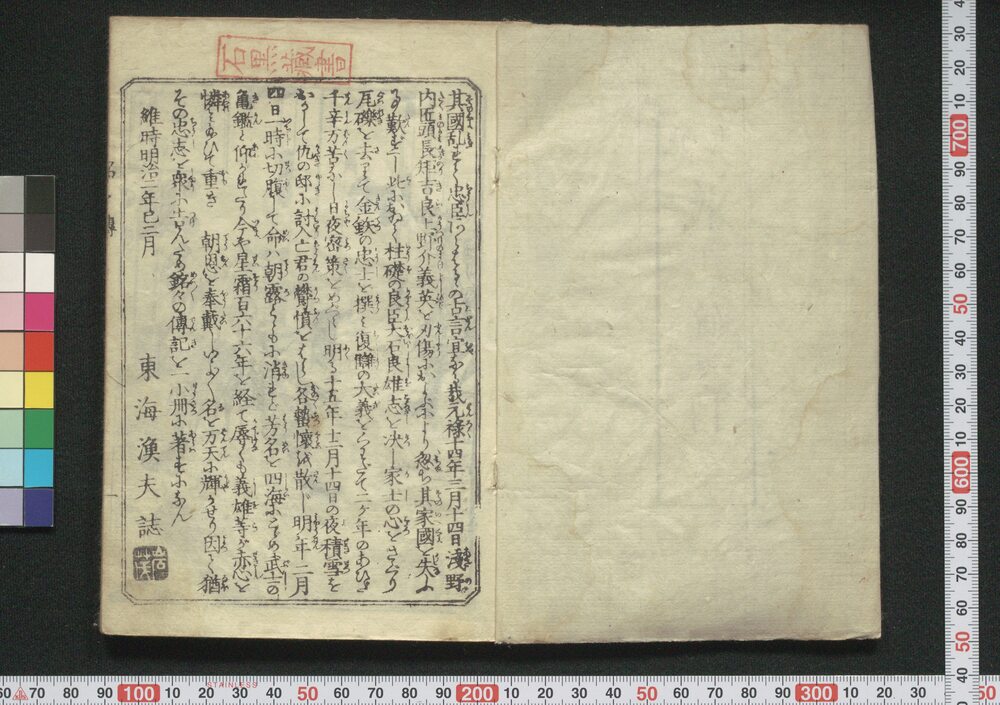 石黒藏書
其國乱れて忠臣つくるの占言宜なる哉元禄十四年三月十四日浅野
内匠頭長矩吉良上野介義英を刃傷におよぶにより忽ち其家國を失ふ
柱礎の良臣大石良雄志を決し家士の心をさぐり
瓦礫を去りて金鉄の忠士を撰み復讐の大義をくわだて二ヶ年のあひだ
千辛万苦なし日夜密策をめぐらし明る十五年十二月十四日の夜積雪を
おかして仇の邸に討入亡君の欝憤をはらし各蓄懐を散じ明る年二月
四日一時に切腹して命ハ朝露とともに消れど芳名を四海にとゞめ武士の
亀鑑と仰がれたり今や星霜百六十六年を経て辱くも義雄等が赤心を
憐みたまひて重き 朝恩を奉戴しいよ〱名を万天に輝かせり因て猶
その忠志を衆に告んため銘々の傳記を一小冊に著すになん
維時明治二年巳二月
東海漁夫誌